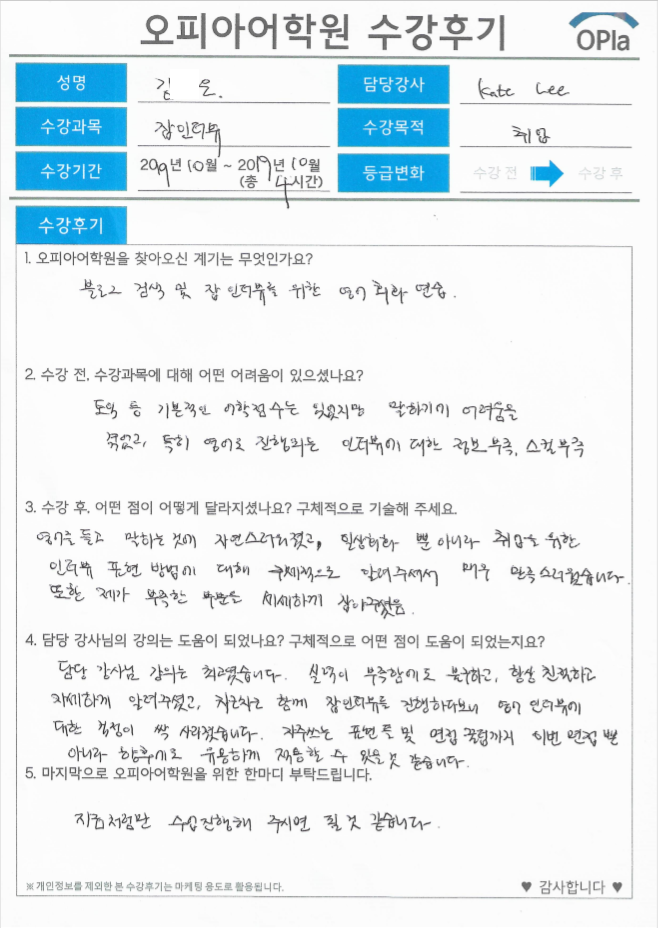 오피아어학원 수강후기
OPIa
성명 김 은. 담당강사 Kate Lee
수강과목 잡인터뷰 수강목적 취업
수강기간 2019년 10월 ~ 2019년 10월 등급변화 수강 전 수강 후
(총 4시간)
수강후기
1. 오피아어학원을 찾아오신 계기는 무엇인가요?
블로그 검색 및 잡 인터뷰를 위한 영어 회화 연습.
2. 수강 전, 수강과목에 대해 어떤 어려움이 있으셨나요?
토익 등 기본적인 어학점수는 있었지만 말하기에 어려움을
겪었고, 특히 영어로 진행되는 인터뷰에 대한 정보부족, 스킬부족
3. 수강 후, 어떤 점이 어떻게 달라지셨나요? 구체적으로 기술해 주세요.
영어를 듣고 말하는 것에 자연스러워졌고, 일상회화 뿐 아니라 취업을 위한
인터뷰 표현 방법에 대해 구체적으로 알려주셔서 매우 만족스러웠습니다.
또한 제가 부족한 부분을 세세하게 잡아주셨음.
4. 담당 강사님의 강의는 도움이 되었나요? 구체적으로 어떤 점이 도움이 되었는지요?
담당 강사님 강의는 최고였습니다. 실력이 부족함에도 불구하고, 항상 친절하고
자세하게 알려주셨고, 차근차근 함께 잡인터뷰를 진행하다보니 영어 인터뷰에
대한 걱정이 싹 사라졌습니다. 자주쓰는 표현 들 및 면접 꿀팁까지 이번 면접 뿐
아니라 향후에도 유용하게 적용할 수 있을 것 같습니다.
5. 마지막으로 오피아어학원을 위한 한마디 부탁드립니다.
지금처럼만 수업진행해 주시면 될 것 같습니다.
※ 개인정보를 제외한 본 수강후기는 마케팅 용도로 활용됩니다.
♥ 감사합니다 ♥